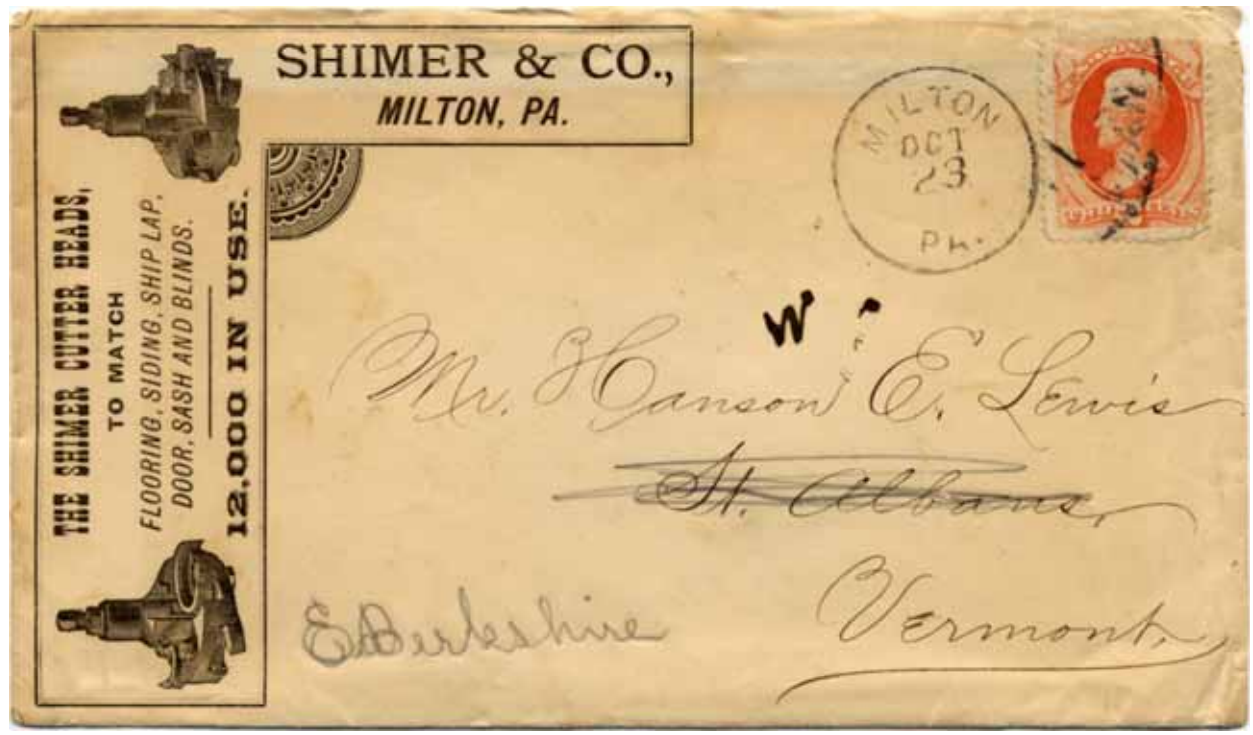 SHIMER & CO.,
MILTON, PA.
THE SHIMER CUTTER HEADS,
TO MATCH
FLOORING, SIDING, SHIP LAP,
DOOR, SASH AND BLINDS.
12,000 IN USE.
MILTON
OCT
23
PA.
W
Mr. Hanson E. Lewis
St. Albans,
Vermont.
E Berkshire